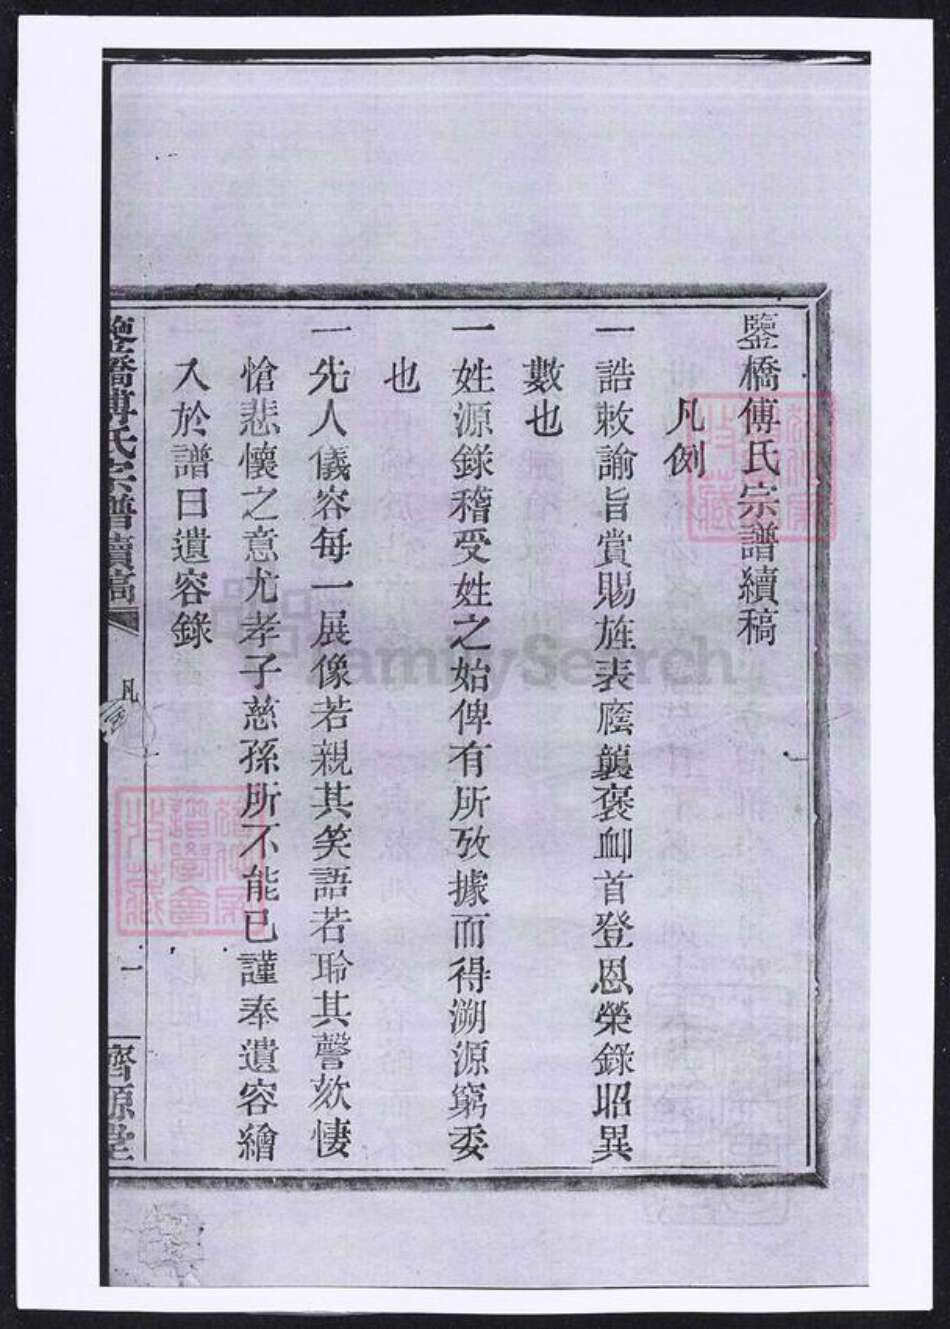 鑒橋傅氏宗譜續稿
凡例
一誥敕諭旨賞賜旌表廕襲褒卹首登恩榮錄昭異
數也
一姓源錄稽受姓之始俾有所攷據而得溯源窮委
也
一先人儀容每一展像若親其笑語若聆其謦欬悽
愴悲懷之意尤孝子慈孫所不能已謹奉遺容繪
入於譜曰遺容錄
鑒橋傅氏宗譜續稿
凡
一
齊源堂
FamilySearch